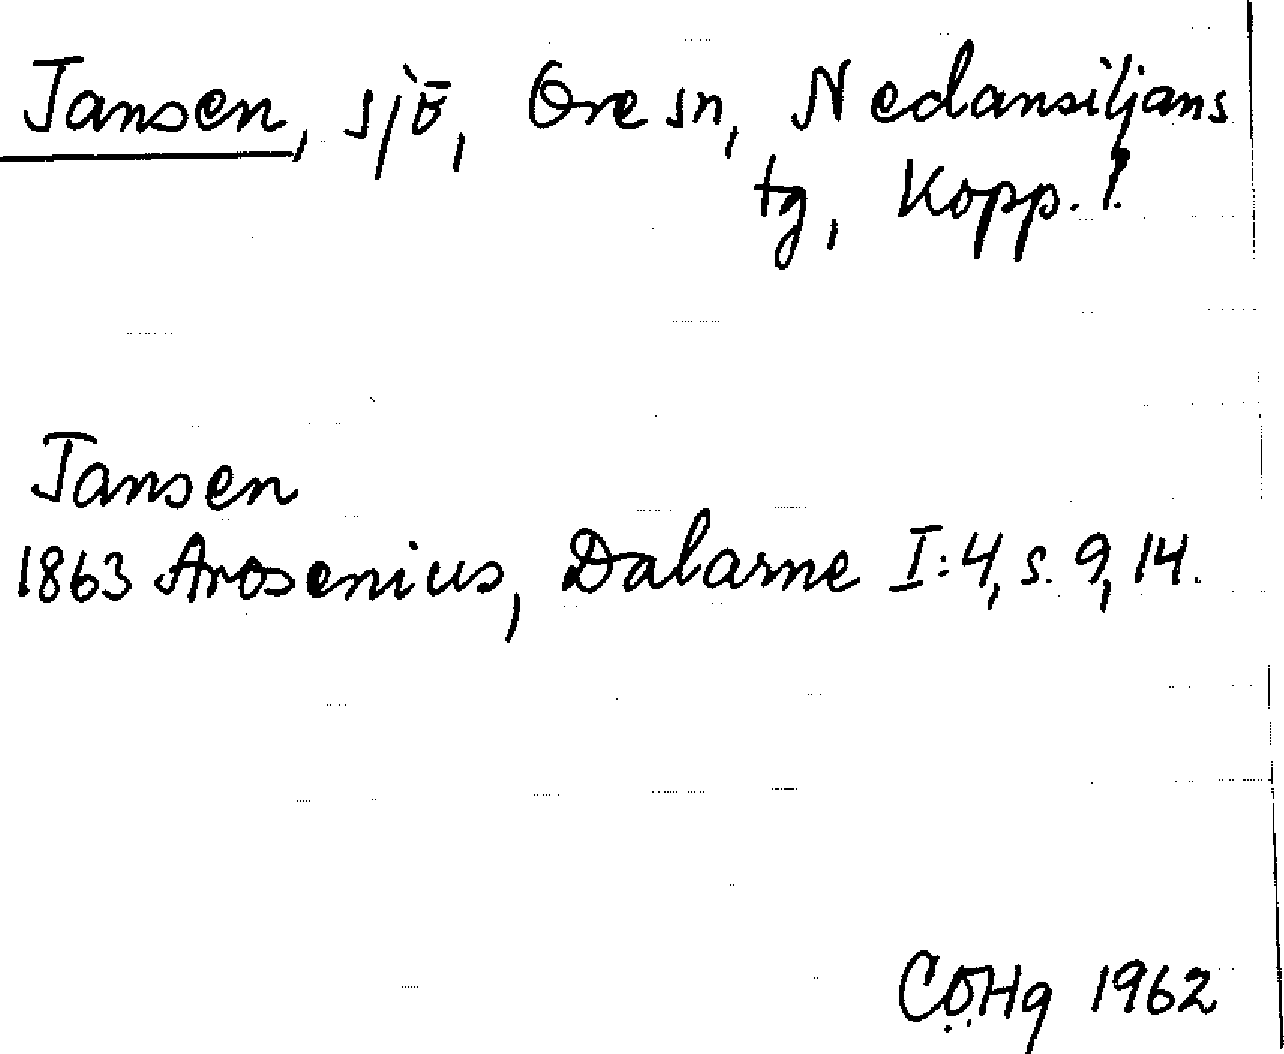 Jansen, sjö, Ore sn, Nedansiljans
tg, Kopp. l.
Jansen
1863 Arosenius, Dalarne I:4, s. 9, 14.
CÖHg 1962